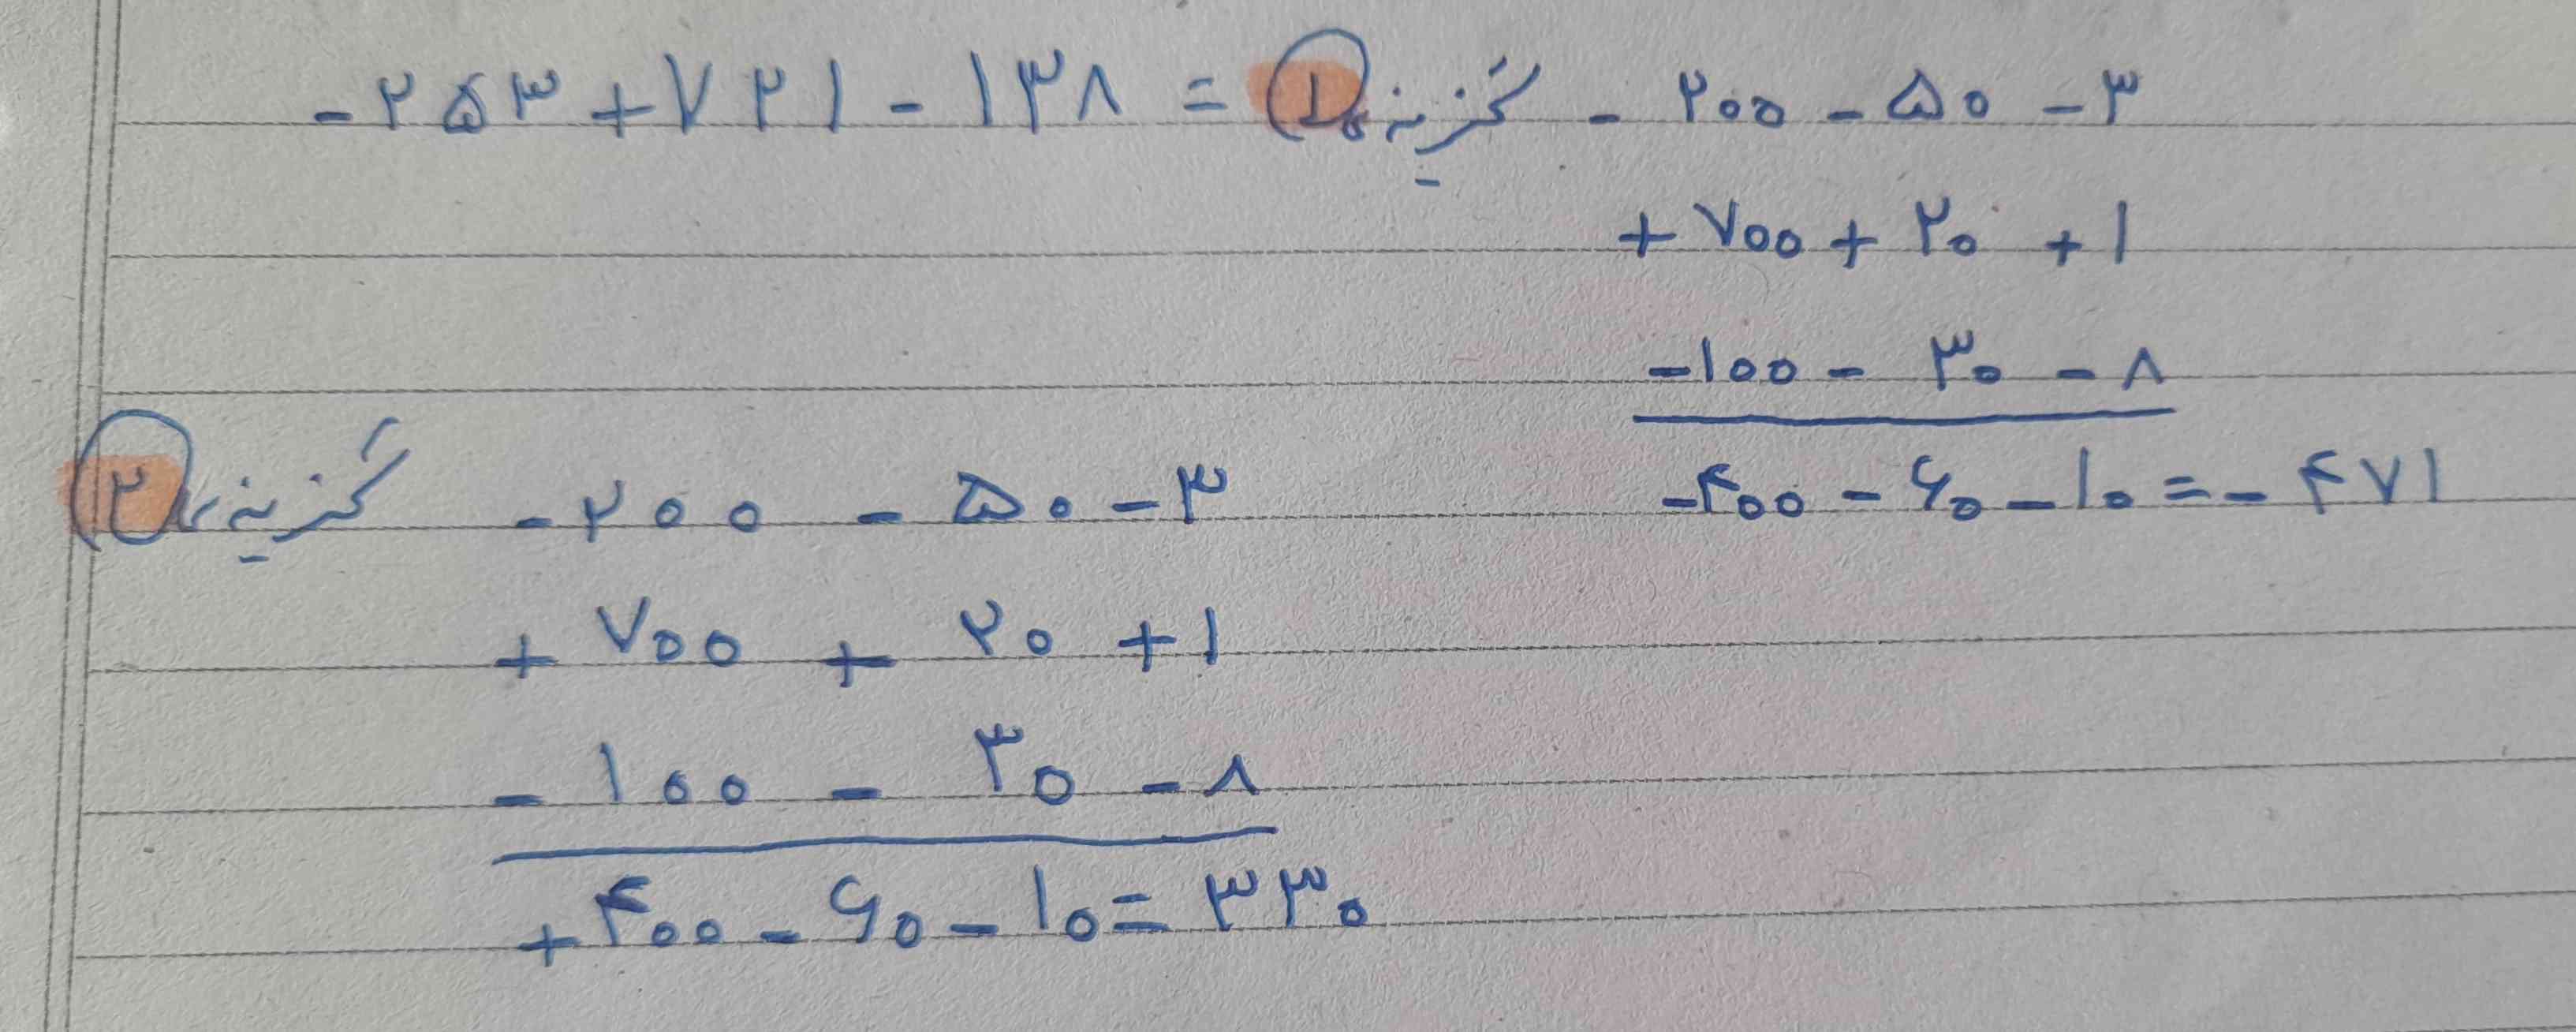 -۲۵۳+۷۲۱-۱۳۸ = گزینه ۱ -۲۰۰-۵۰-۳
+۷۰۰+۲۰+۱
-۱۰۰-۳۰-۸
-۴۰۰-۶۰-۱۰=-۴۷۱
گزینه ۲ -۲۰۰-۵۰-۳
+۷۰۰+۲۰+۱
-۱۰۰-۳۰-۸
+۴۰۰-۶۰-۱۰=۳۳۰